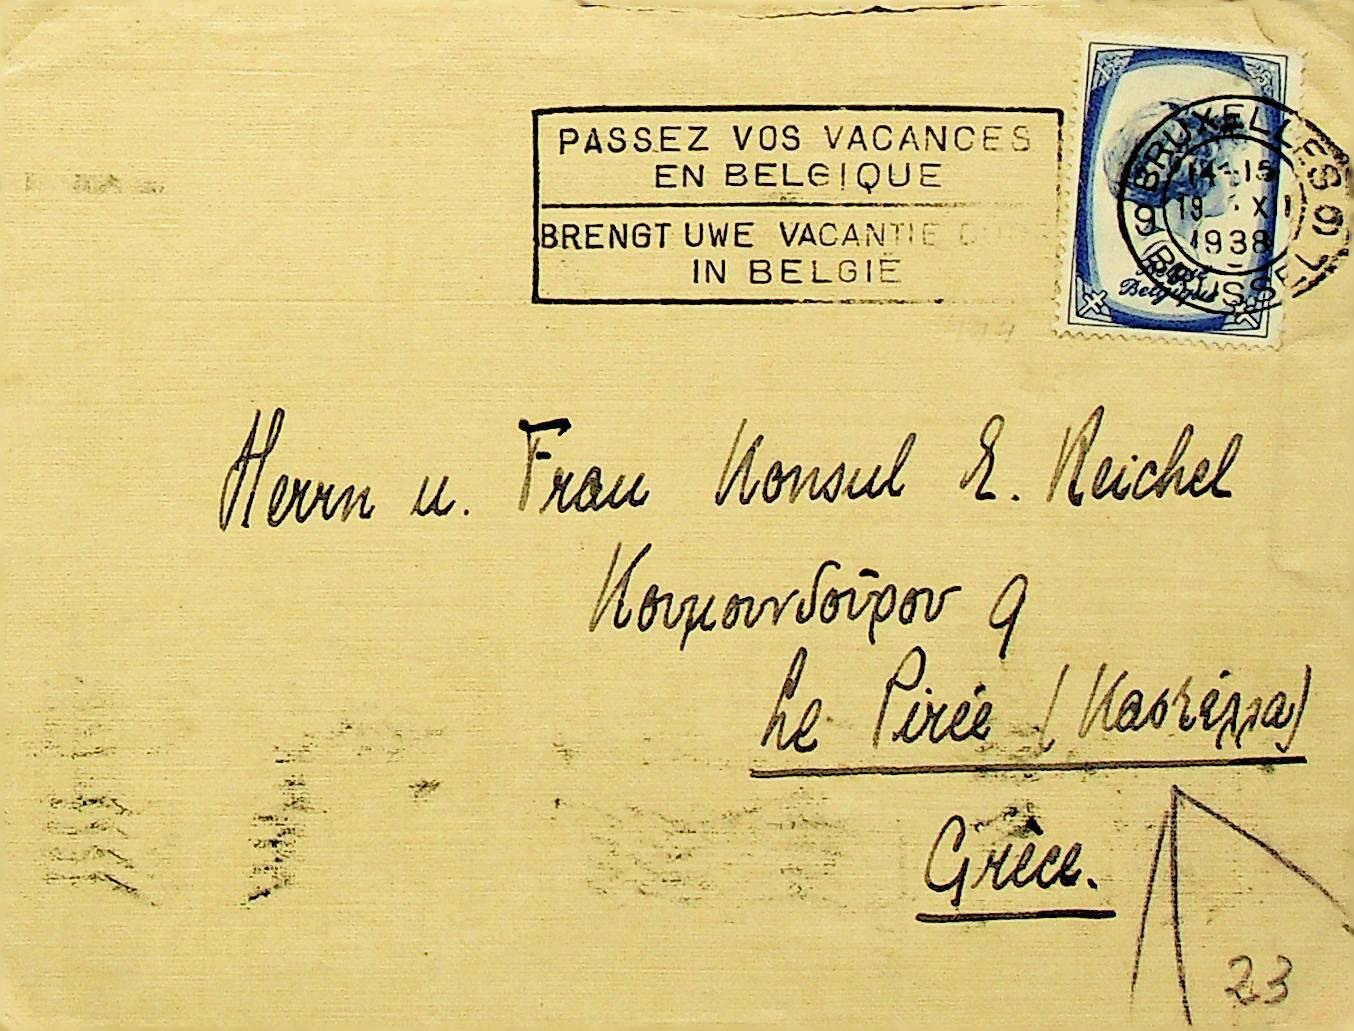 PASSEZ VOS VACANCES
EN BELGIQUE
BRENGT UWE VACANTIE
IN BELGIË
BRUXELLES
14-15
19 XII
1938
BRUSSEL
Belgique
Herrn u. Frau Konsul E. Reichel
Κουμουνδούρου 9
Le Pirée (Καστέλλα)
Grèce.
23